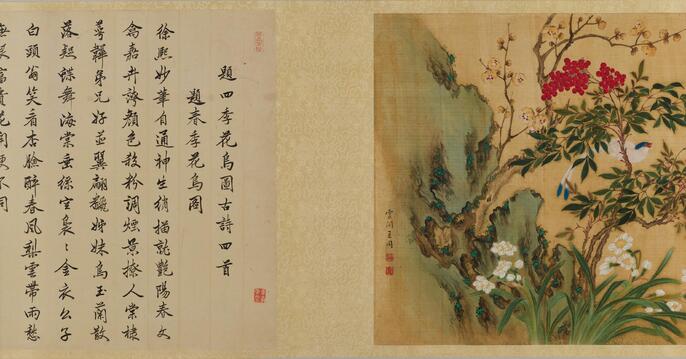 題四季花鳥圖古詩四首
題春季花鳥圖
徐熙妙筆自通神生綃描就艷陽春文
禽嘉卉誇顏色殺粉調煙景撩人棠棣
萼韡弟兄好並翼翩翻姊妹鳥玉蘭散
落趁蝶舞海棠垂絲宜裊〻金衣公子
白頭翁笑看杏臉醉春風梨雲帶雨愁
富貴花開更不同
雲間王岡